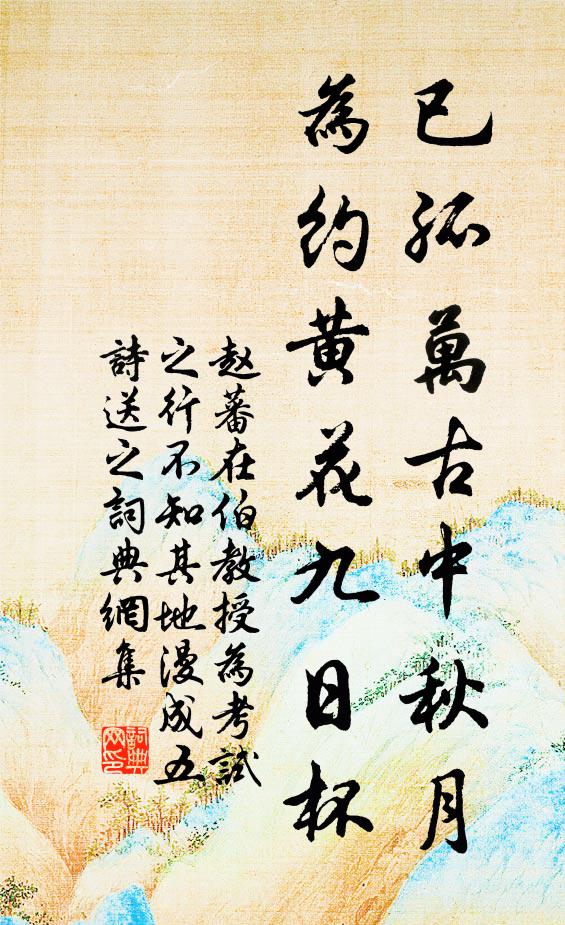 已孤萬古中秋月
為約黄花九日杯
赵蕃在伯教授為考試
之行不知其地漫成五
詩送之詞典網集
詞典网印